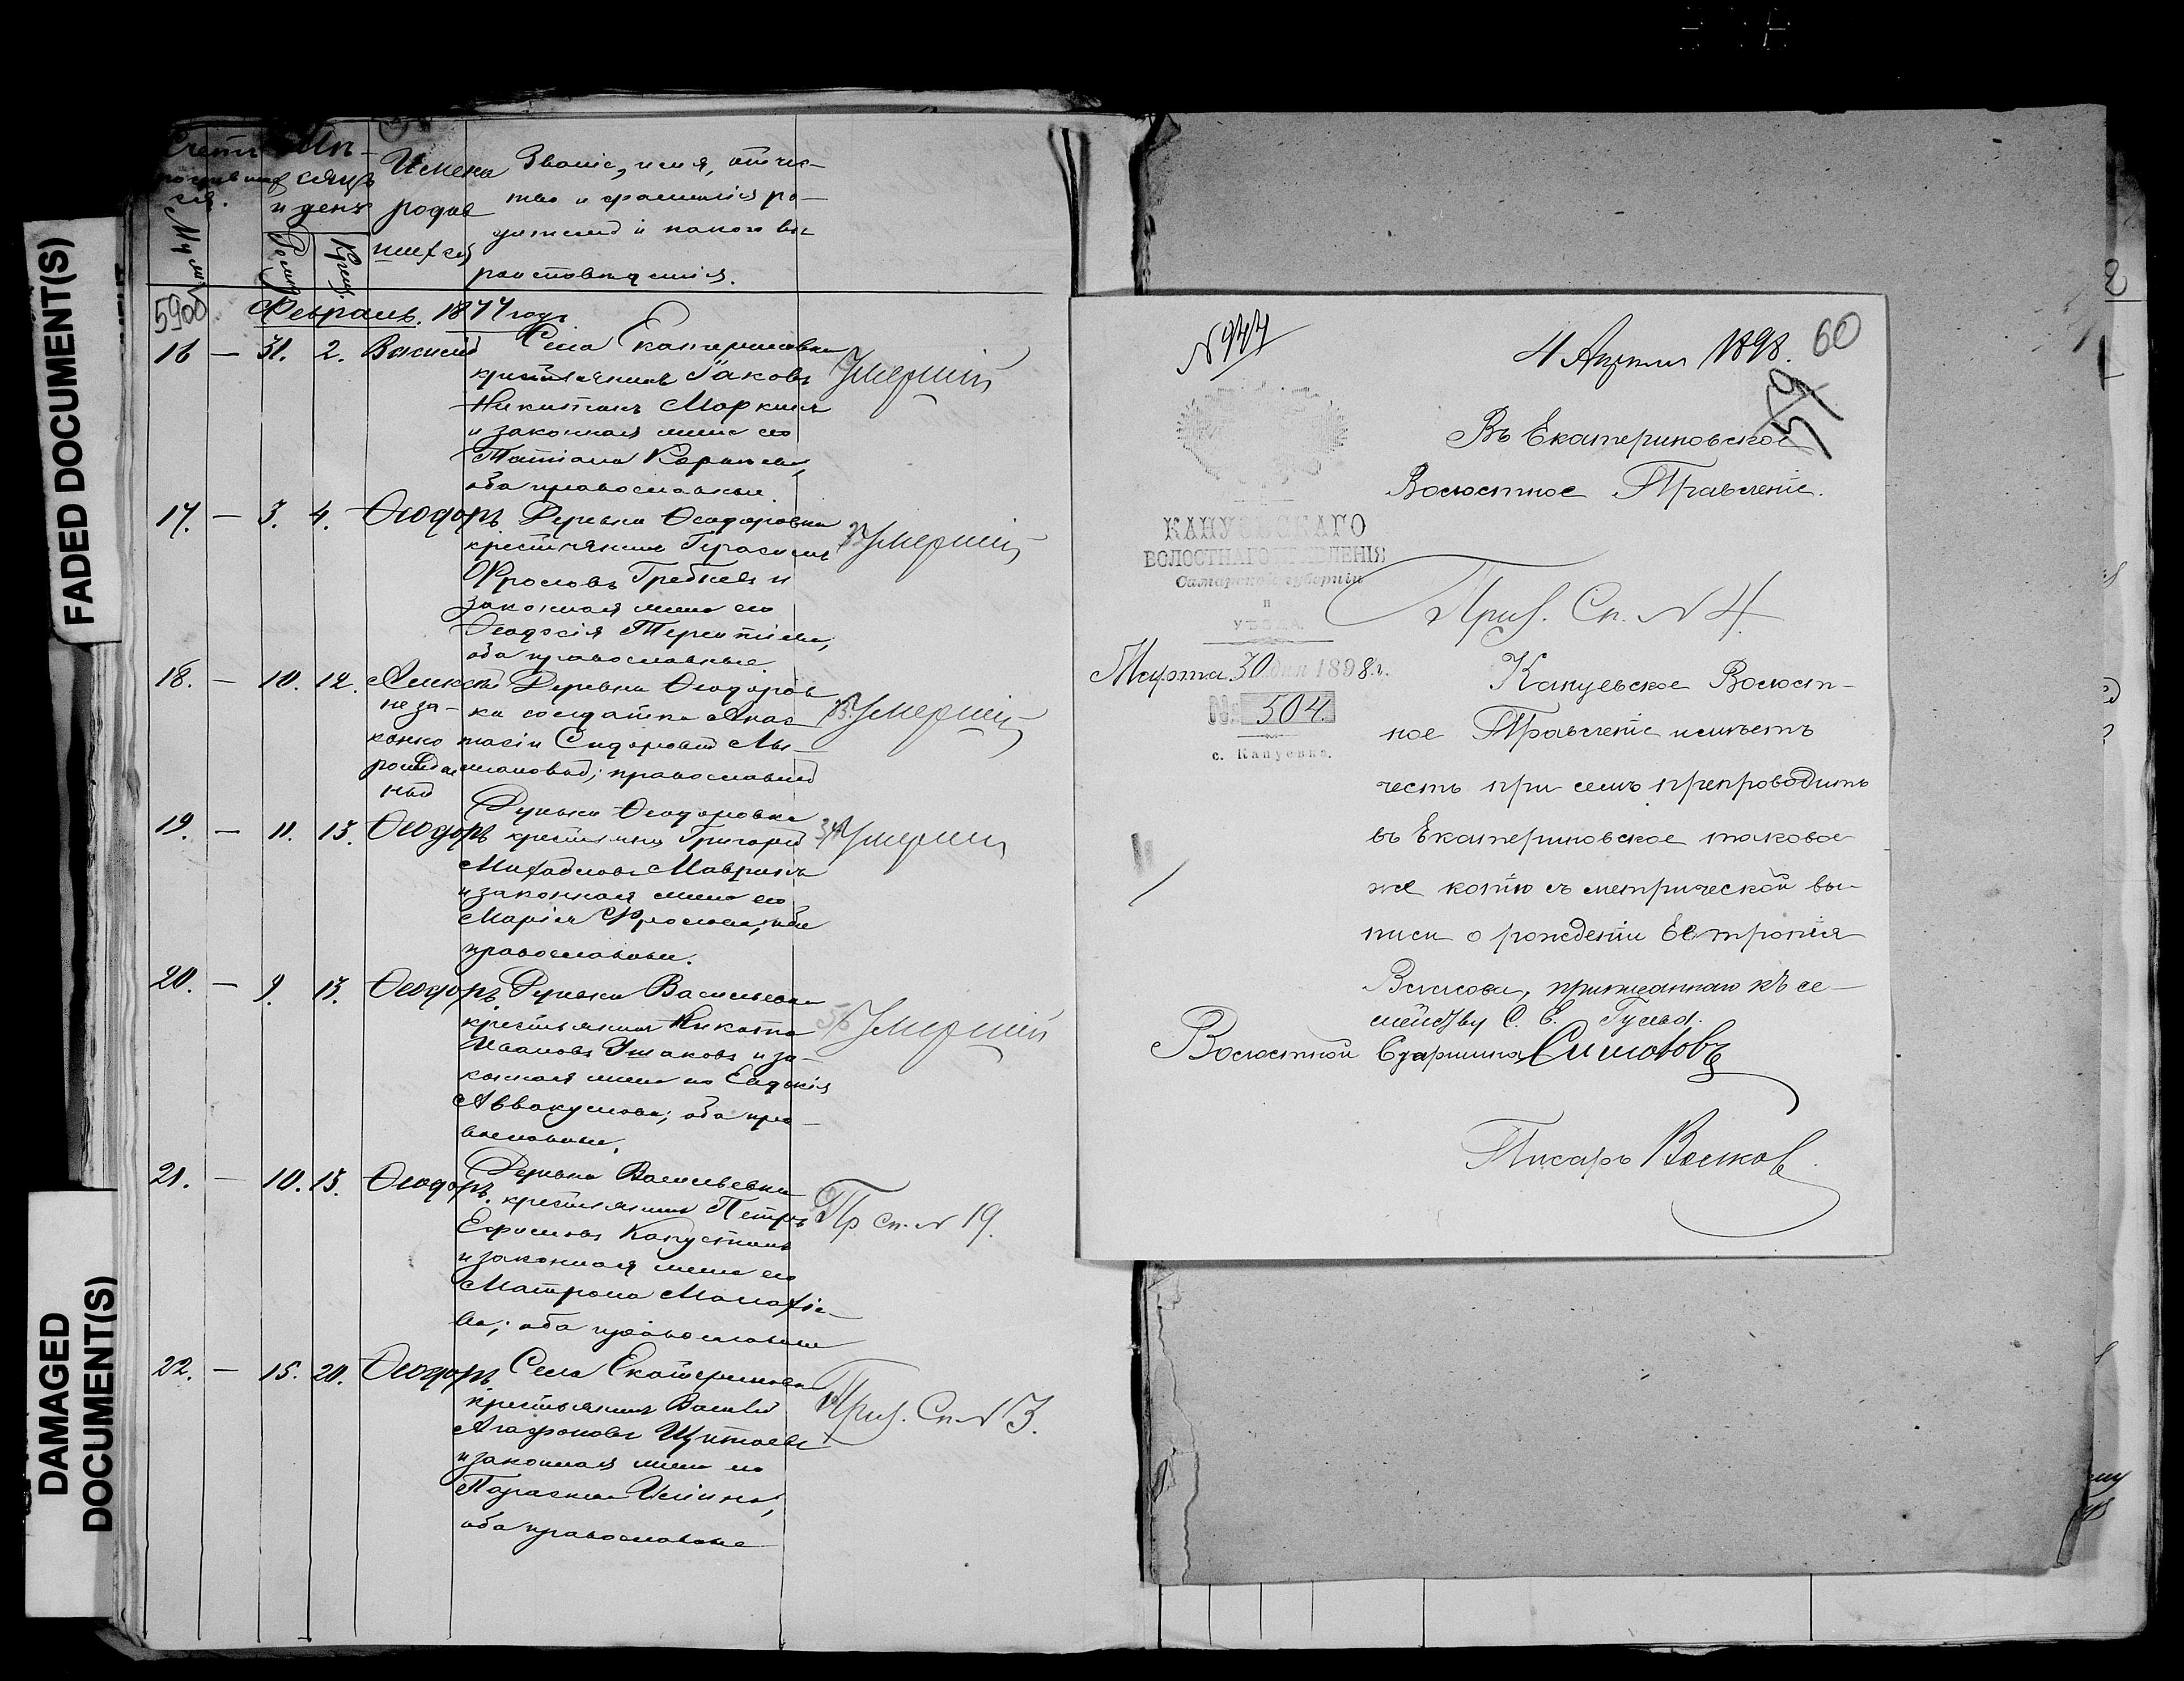 FADED DOCUMENT(S)
DAMAGED
DOCUMENT(S)
Имена
родив
шихся
Званіе, имя, отче-
ство и фамилія ро-
дителей и какого ве-
роисповеданія.
сяцъ
и день
5900
Февраль. 1877 годъ
16 — 31. 2. Василій Села Екатериновки
крестьянинъ Іаковъ
Никитинъ Маркинъ
и законная жена его
Татіана Карпова,
оба православные.
Умершій
17. — 3. 4. Ѳеодоръ Деревни Ѳеодоровки
крестьянинъ Герасимъ
Фроловъ Гребневъ и
законная жена его
Ѳеодосія Терентіева,
оба православные.
32 Умершій
18. — 10. 12. Алексѣй Деревни Ѳеодоров
неза- ки солдатка Анас
конно тасія Сидорова
рожден православной
ный
33. Умершій
19. — 11. 13. Ѳеодоръ Деревни Ѳеодоровки
крестьянинъ Григорій
Михайловъ Мавринъ
и законная жена его
Марія Фролова, оба
православные.
34 Умершій
20. — 9. 13. Ѳеодоръ Деревни Васильевки
крестьянинъ Никита
Ивановъ Ушаковъ и за-
конная жена его Евдокія
Аввакумова; оба пра-
вославные.
Умершій
21. — 10. 13. Ѳеодоръ Деревни Васильевки
крестьянинъ Петръ
Ефимовъ Капустинъ
и законная жена его
Матрона Малахіе-
ва; оба православные
Пр. сп. N 19.
22. — 15. 20. Ѳеодоръ Села Екатериновки
крестьянинъ Василій
Агафоновъ
и законная жена его
Параскева Ильина,
оба православные
Приз. Сп. N 3.
N 977
4 Апреля 1898.
60
59
Въ Екатериновское
Волостное Правленіе.
КАПУЕВСКАГО
ВОЛОСТНАГО ПРАВЛЕНІЯ
Самарской губерніи
и
УѢЗДА.
Приз. Сп. N 4.
Марта 30 дня 1898 г.
№ 504.
с. Капуевка.
Капуевское Волост-
ное Правленіе имѣетъ
честь при семъ препроводить
въ Екатериновское таковое
же копію съ метрической вы-
писи о рожденіи Евтропія
приписаннаго къ се-
мейству С. Е.
Волостной Старшина Симововъ
Писарь Волков